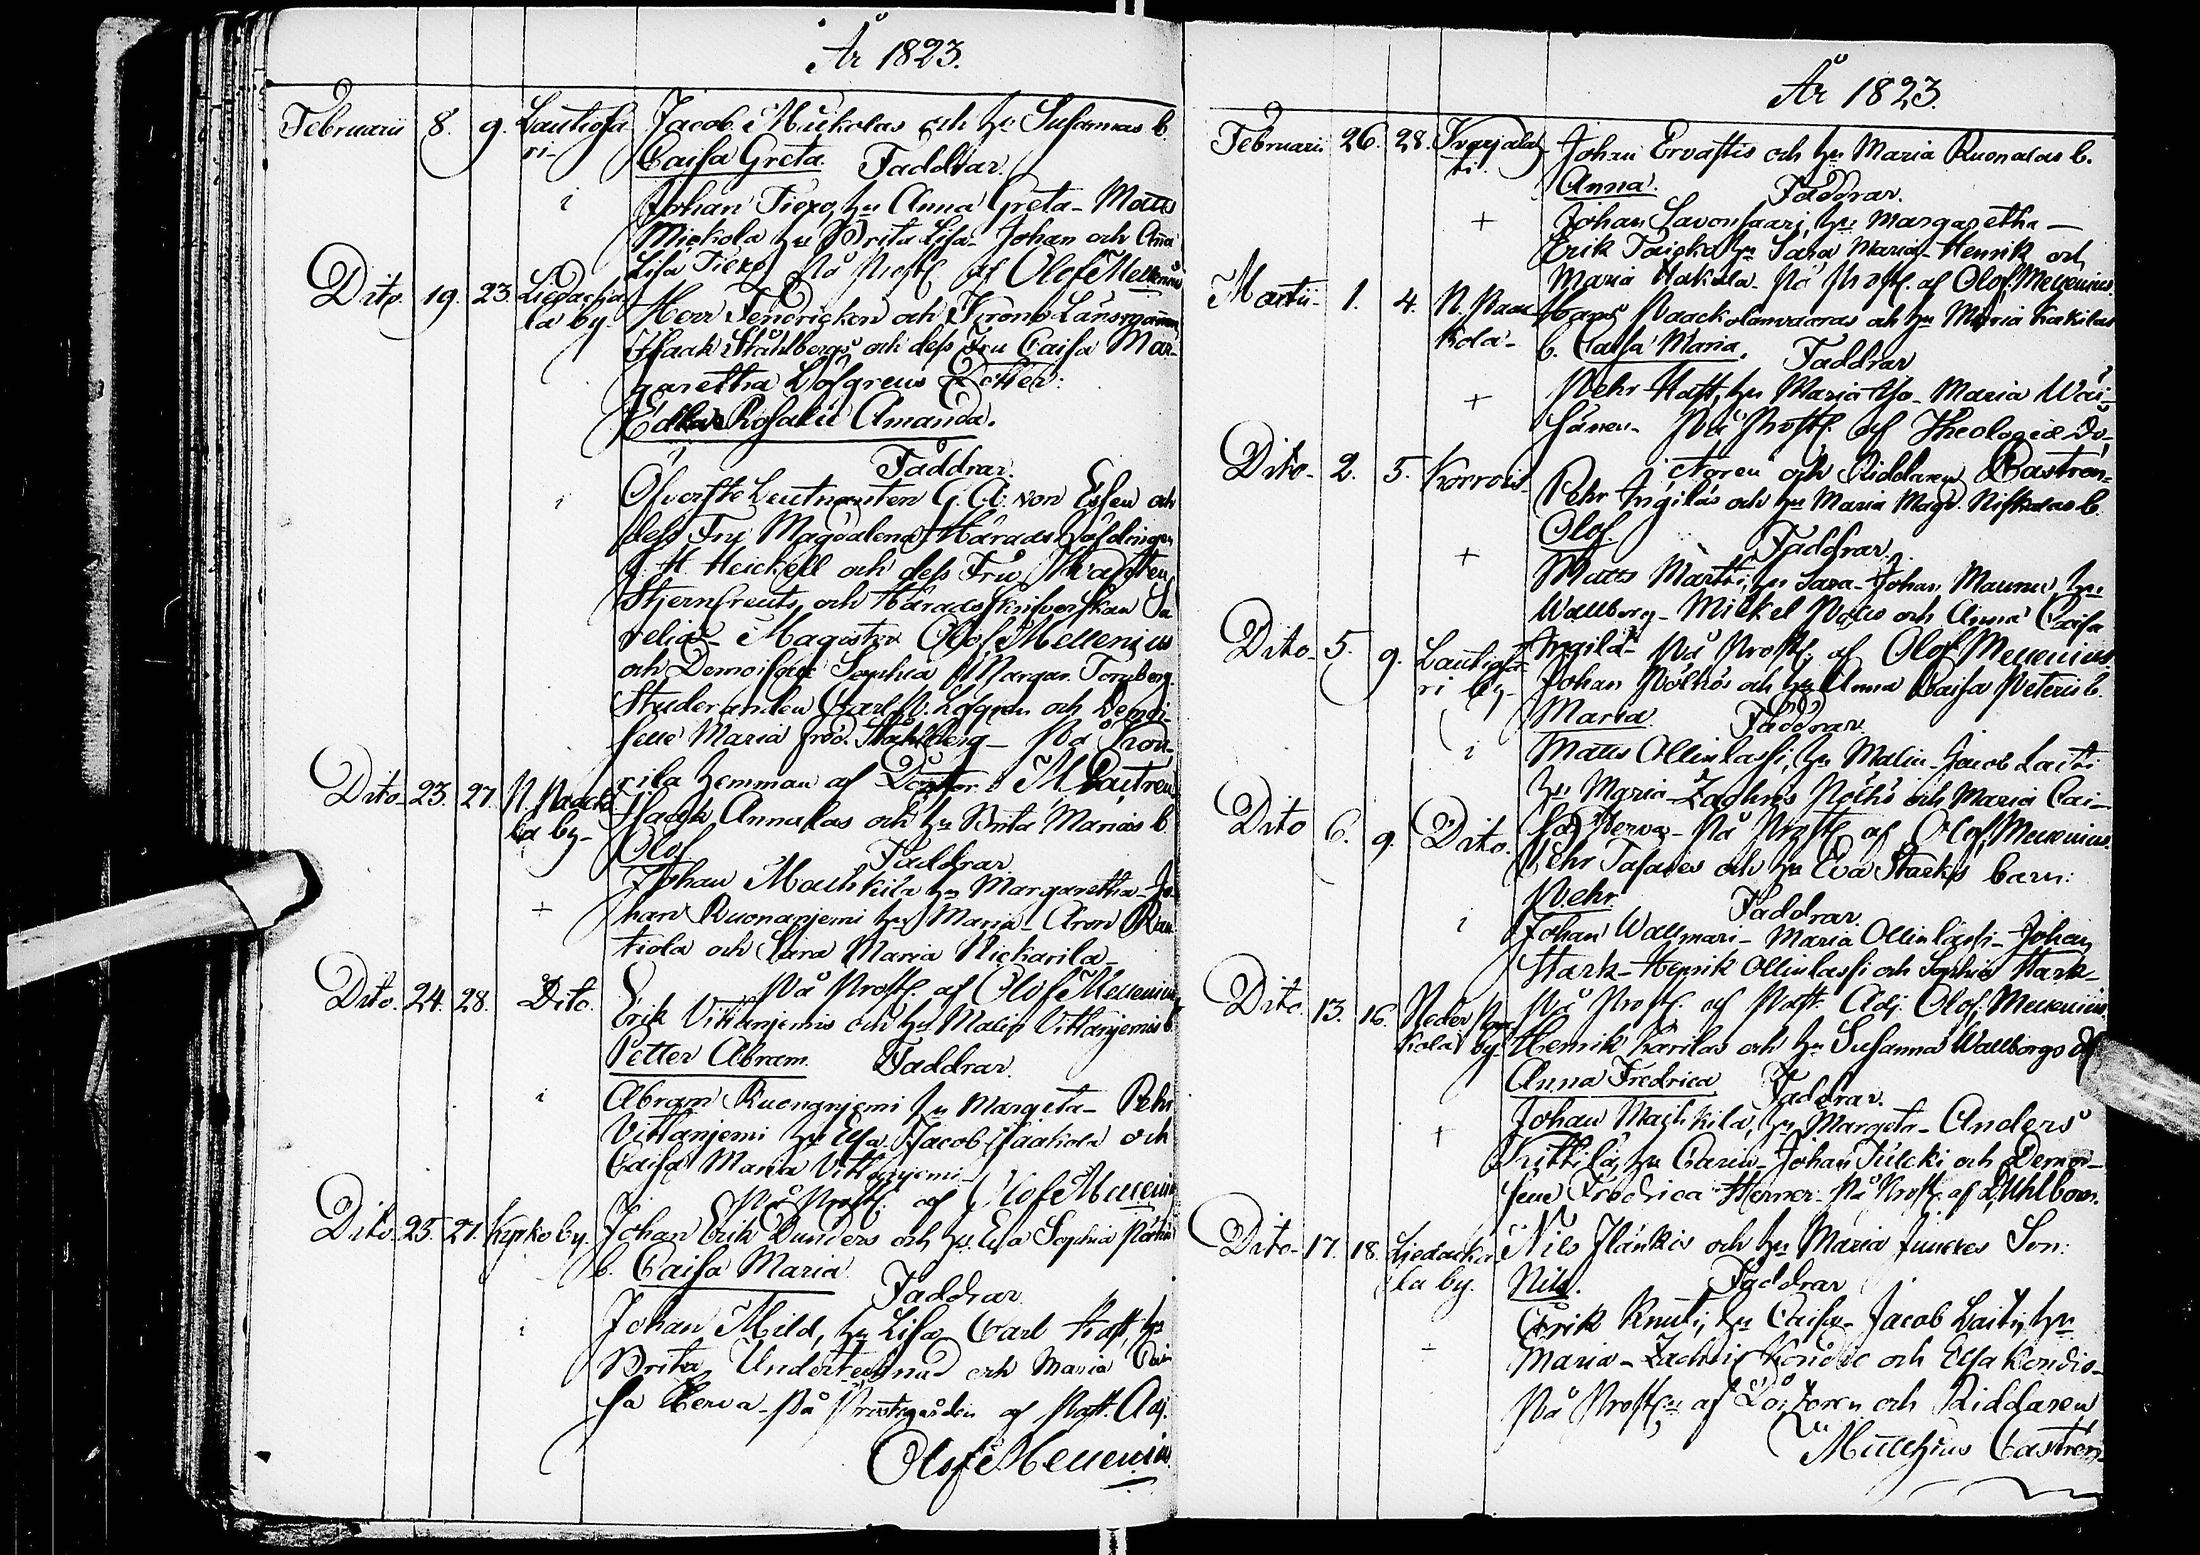 År 1823.
Februarii 8. 9. Lautiosa Jacob Mickolas och hu Susannas b.
ri- Caisa Greta. Faddrar.
i Johan Fiexo, hu Anna Greta - Matts
Mickola hu Brita Lisa - Johan och Aña
Lisa Fiexo På Prostg af Olof Mellenius
Dito. 19. 23. Liedacka Herr Fendricken och Krono Länsmannen
la by. Isaak Ståhlbergs och dess Fru Caisa Mar-
garetha Löfgrens Dotter:
Edla Rosalie Amanda.
Faddrar.
i Öfverste Leutnanten G. A. von Essen och
dess Fru Magdalena, Härads Höfdingen
H. Heickell och dess Fru, Kapten
Stjerncreutz och Häradsskrifverskan
Magister Olof Mellenius
och Demoiselle Sophia Margar. Tornberg.
Studeranden Carl Löfgren och Demoi-
selle Maria Fred. Ståhlberg - På
rila hemman af Doctor M Castren
Dito 23. 27. N. Paacko Isaak Annalas och hu Brita Marias b.
la by- Olof Faddrar
Johan Mathkila hu Margaretha - Jo-
+ han Ruonanjemi hu Maria - Aron Rau
tiola och Maria Nickarila -
På Prostg. af Olof Mellenius
Dito. 24. 28. Dito. Erik Vitlanjemis och hu Malin Vitlanjemis b.
Petter Abram. Faddrar.
i Abram Ruonanjemi hu Margeta - Pehr
Vitlanjemi hu Elsa - Jacob och
Caisa Maria Vitlanjemi -
På Prostg: af Olof Mellenius
Dito. 25. 27. Kyrko by. Johan Erik Dunders och hu Eva Sophia
b. Caisa Maria Faddrar
i Johan Mild, hu Lisa, Carl hu
Brita, Undertecknad och Maria Cai
sa Herva - På Prostgården af Past. Adj.
Olof Mellenius.
År 1823.
Februarii 26. 28. Johan Ervastis och hu Maria Ruonalas b.
Anna. Faddrar.
+ Johan Savonsaari, hu Margaretha -
Erik hu Sara Maria - Henrik och
Maria Kakala - På Prostg. af Olof Mellenius.
Martii- 1. 4. N. Paac Hans Paackolanvaaras och hu Maria Kakilas
kola- b. Caisa Maria. Faddrar
+ Pehr hu Maria - Maria Wäi-
sänen - På Prostg af Theologiæ Do-
ctoren och Riddaren Castrén-
Dito- 2. 5. Korrois Pehr Ingiläs och hu Maria Magd. Niskalas b.
Olof. Faddrar.
+ Matts Martti, hu Sara - Johan Maunu, hu
Wallborg - Mickel och Anna Caisa
Ingilä - På Prostg. af Olof Mellenius.
Dito- 5. 9. Lautiosa- Johan Pölhös och hu Anna Caisa Peteris b.
ri by- Maria. Faddrar
i Matts Ollinlassi, hu Malin - Jacob Laiti
hu Maria - Zachris Pölhö och Maria Cai-
sa Herva - På Prostg af Olof Mellenius.
Dito 6. 9. Dito. Pehr Tasanes och hu Eva Starks barn:
Pehr Faddrar.
i Johan Wallmari - Maria Ollinlassi - Johan
Stark - Henrik Ollinlassi och Sophia Stark -
På Prostg. af Past. Adj. Olof Mellenius.
Dito. 13. 16. Neder Paac Henrik Karilas och hu Susanna Wallborgs
kola by. Anna Fredrica Faddrar.
+ Johan Mathkila, hu Margeta - Anders
Kittilä, hu Carin - Johan och Demoi-
selle Fredrica Herner - På Prostg. af Uhlbom.
Dito- 17. 18. Liedacka Nils Ilänkis och hu Maria Junckes Son:
la by. Nils. Faddrar
Erik Knuti, hu Caisa - Jacob Laiti, hu
Maria - Zachris Kondio och Elsa Kondio -
På Prostg af Doctoren och Riddaren
Matthæus Castrén